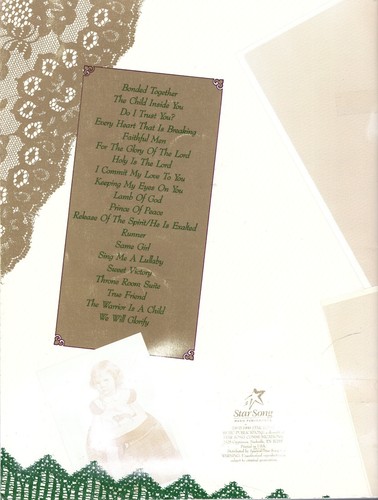 Bonded Together
The Child Inside You
Do I Trust You?
Every Heart That Is Breaking
Faithful Men
For The Glory Of The Lord
Holy Is The Lord
I Commit My Love To You
Keeping My Eyes On You
Lamb Of God
Prince Of Peace
Release Of The Spirit/He Is Exalted
Runner
Same Girl
Sing Me A Lullaby
Sweet Victory
Throne Room Suite
True Friend
The Warrior Is A Child
We Will Glorify
Star Song